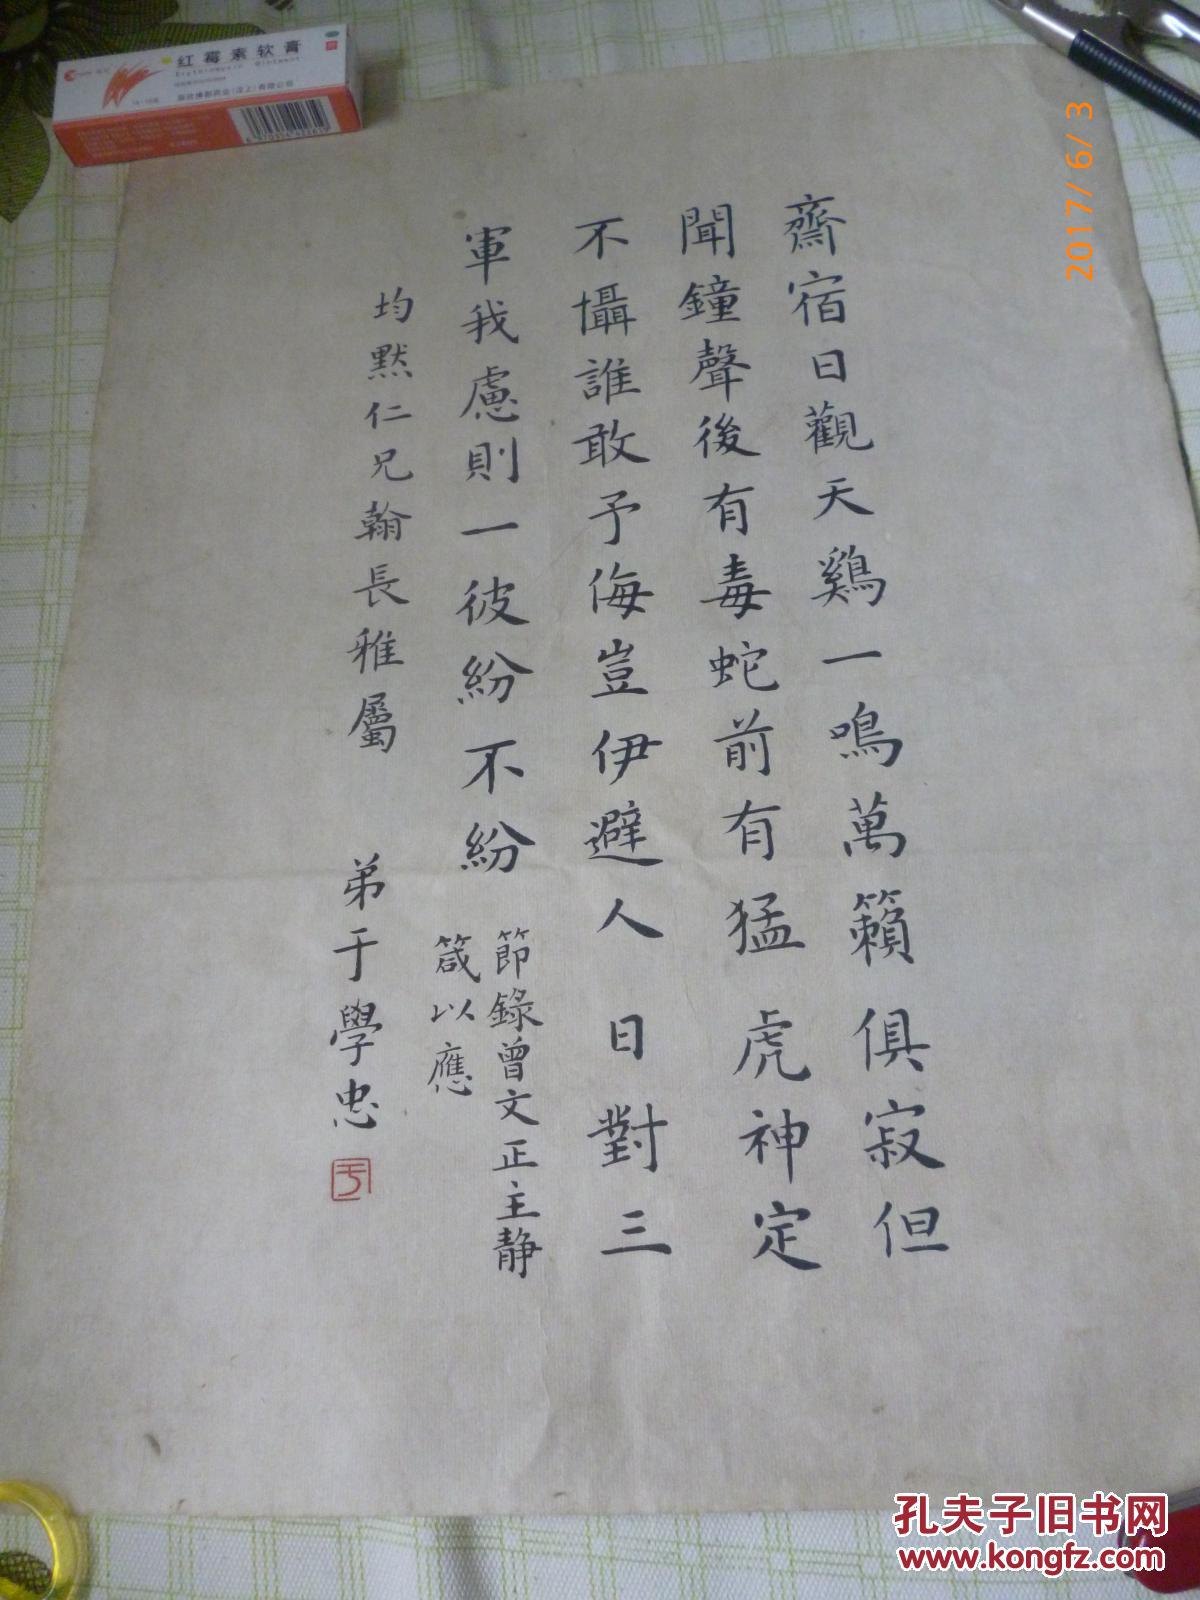 齋宿日觀天鷄一鳴萬籟俱寂但
聞鐘聲後有毒蛇前有猛虎神定
不懾誰敢予侮豈伊避人日對三
軍我慮則一彼紛不紛
節錄曾文正主靜
箴以應
均默仁兄翰長雅屬
弟于學忠
红霉素软膏
Erythromycin Ointment
2017/ 6/ 3
孔夫子旧书网
www.kongfz.com